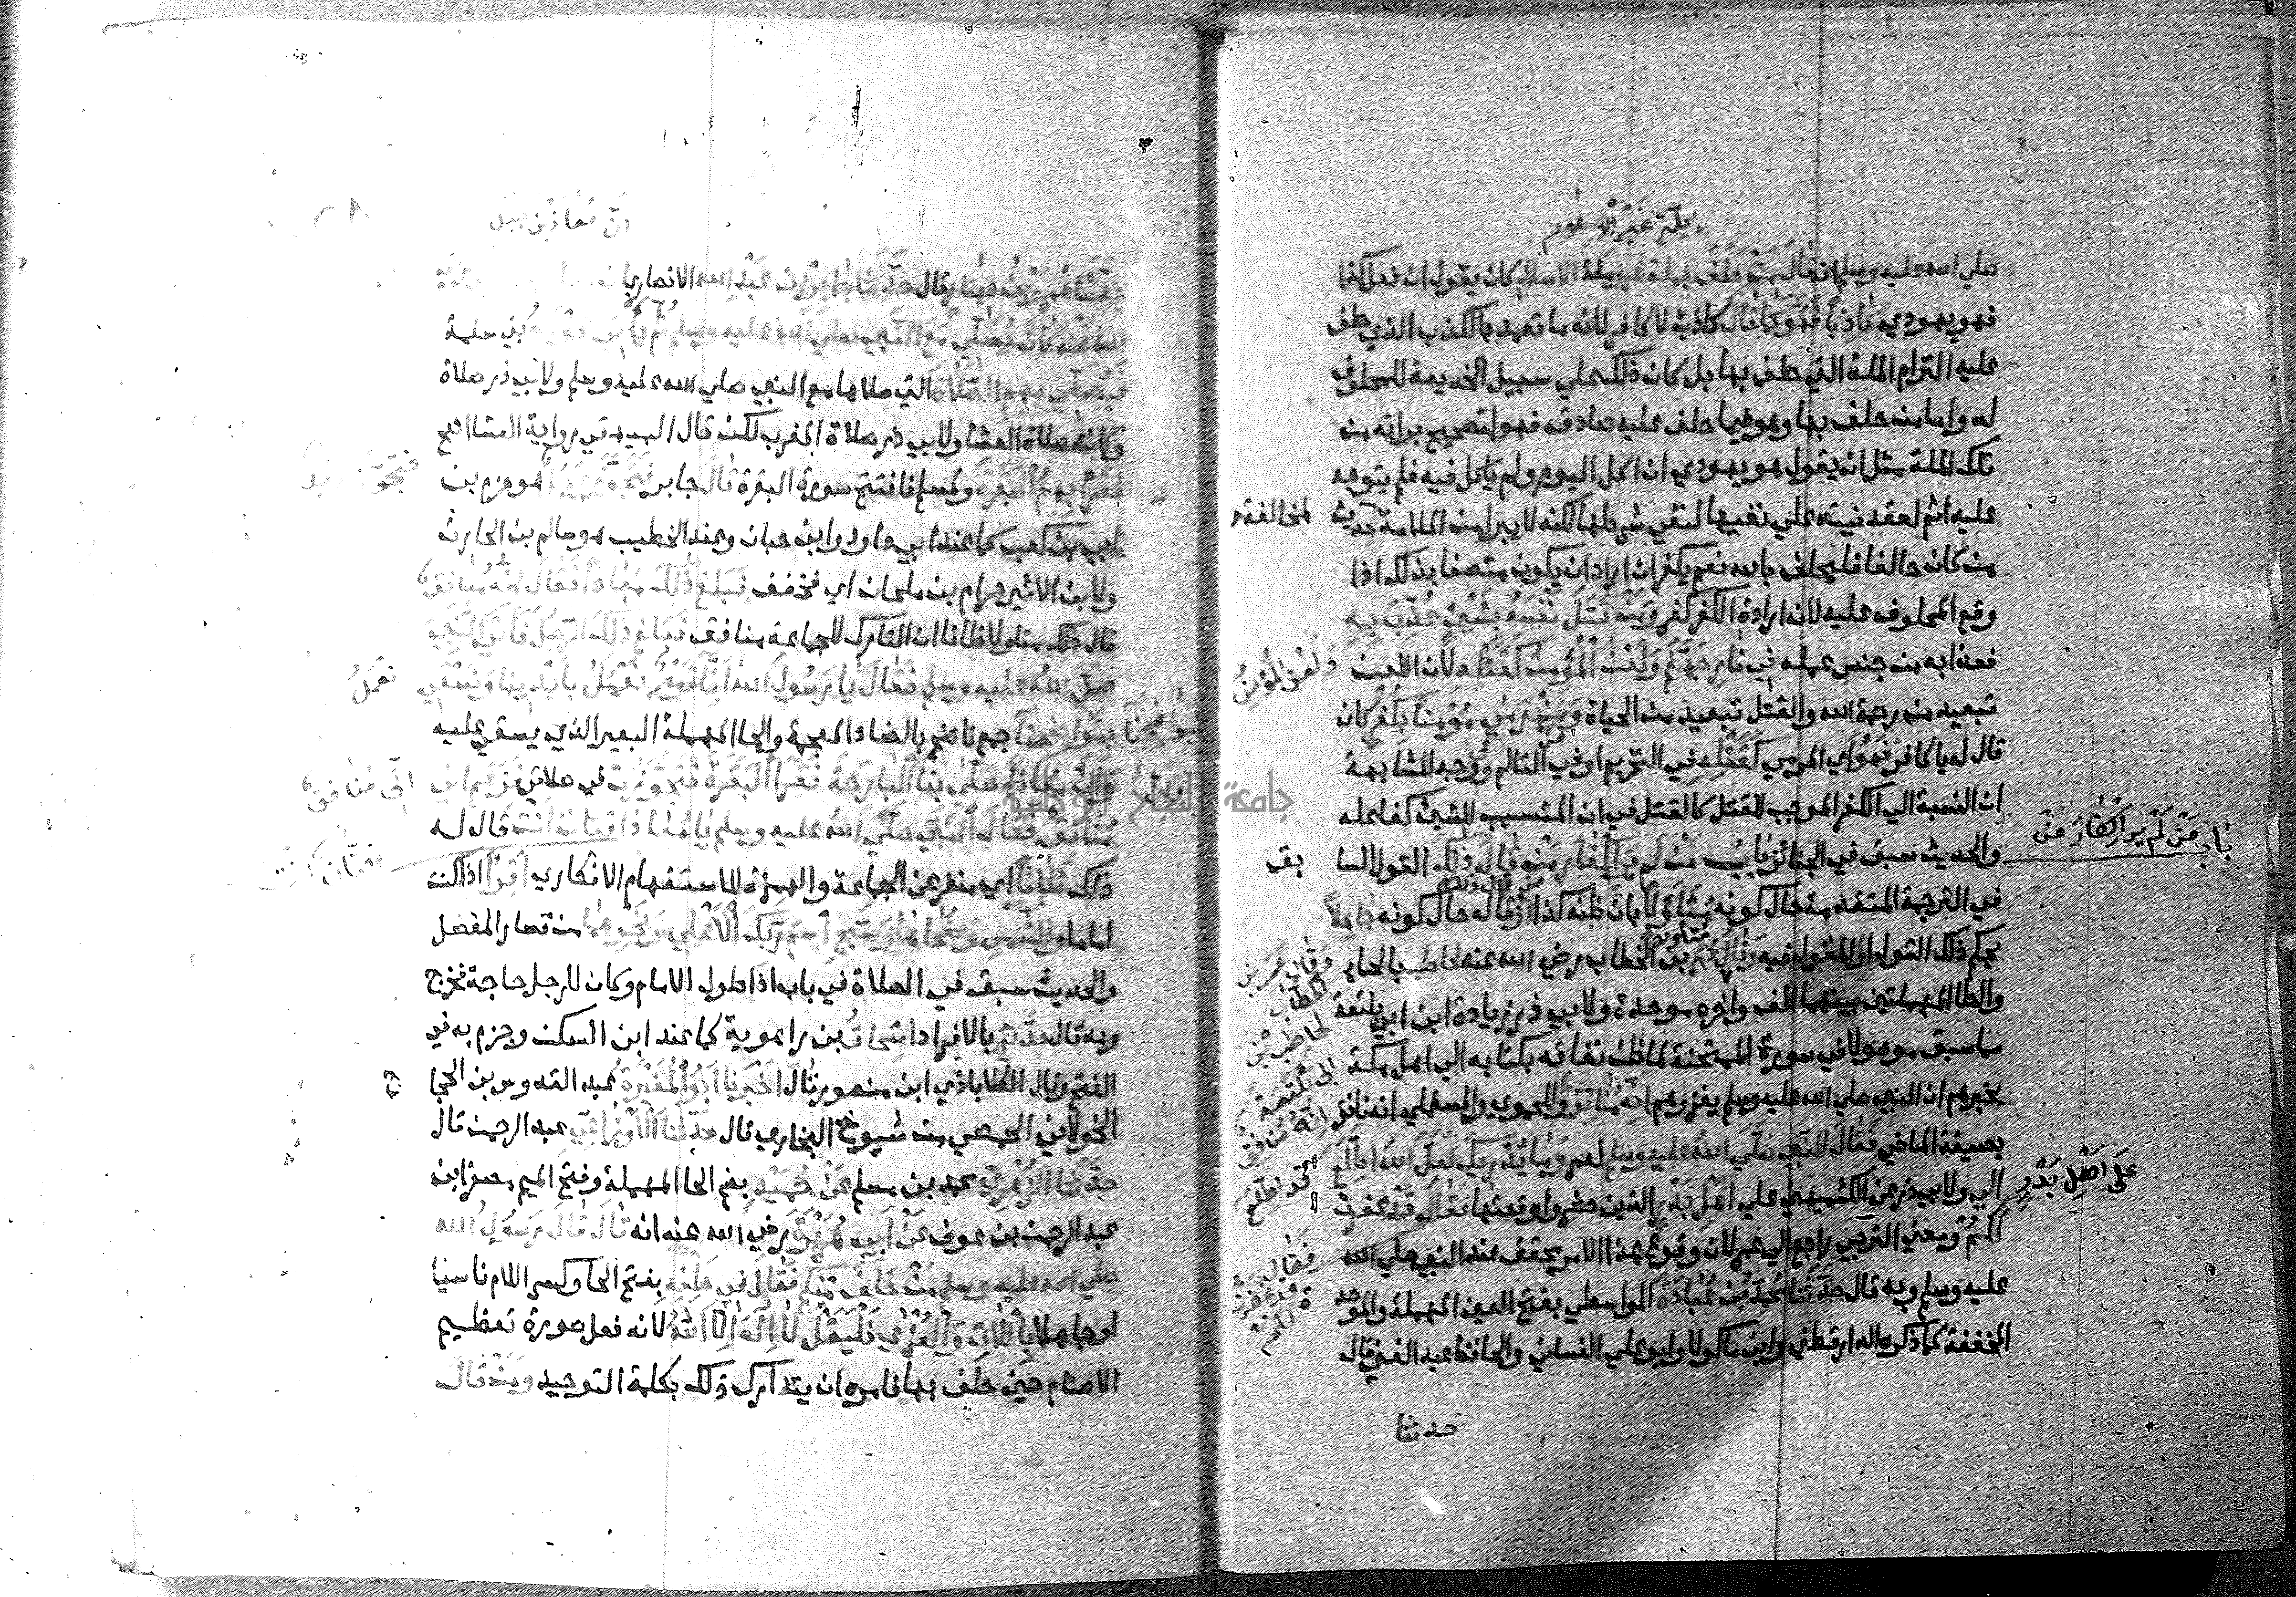 بملة غير الاسلام
صلي الله عليه وسلم انه قال من حلف بملة غير ملة الاسلام كان يقول ان فعل كذا
فهو يهودي كاذبا فهو كما قال كاذب لا كافر لانه ما تعمد بالكذب الذي حلف
عليه التزام الملة التي حلف بها بل كان ذلك علي سبيل الخديعة للمحلوف
له واما من حلف بها وهو فيما حلف عليه صادق فهو لتصحيح براته من
تلك الملة مثل ان يقول هو يهودي ان اكل اليوم ولم ياكل فيه فلم يتوجه
عليه اثم لعقد نيته علي نفيها لنفي شرطها لكنه لا يبرا من الملامة لمخالفة حديث
من كان حالفا فليحلف بالله نعم يكفر ان اراد ان يكون متصفا بذلك اذا
وقع المحلوف عليه لان ارادة الكفر كفر ومن قتل نفسه بشيئ عذب به
فعذابه من جنس عمله في نار جهنم ولعن المؤمن كقتله لان اللعن
ولعن المؤمن
تبعيد من رحمة الله والقتل تبعيد من الحياة ومن رمي مؤمنا بكفر كان
قال له يا كافر فهو اي الرمي كقتله في التحريم او في التالم ووجه المشابهة
ان النسبة الي الكفر الموجب للقتل كالقتل في ان المتسبب للشيئ كفاعله
والحديث سبق في الجنائز باب من لم ير اكفار من قال ذلك القول السابق
باب من لم ير اكفار من
من قال ذلك
في الترجمة المتقدمة حال كونه متاولا بان ظنه كذا او قاله حال كونه جاهلا
متاولا
بحكم ذلك القول او المقول فيه وقال عمر بن الخطاب رضي الله عنه لحاطب بالحاء
وقال عمر بن الخطاب
والطا المهملتين بينهما الف واخره موحدة ولابي ذر زيادة ابن ابي بلتعة
لحاطب بن ابي بلتعة
مما سبق موصولا في سورة الممتحنة لما ظن نفاقه بكتابه الي اهل مكة
يخبرهم ان النبي صلي الله عليه وسلم يغزوهم انه منافق وللحموي والمستملي انه نافق
انه منافق
بصيغة الماضي فقال النبي صلي الله عليه وسلم لعمر وما يدريك لعل الله اطلع
قد اطلع
الي ولابي ذر عن الكشميهني علي اهل بدر الذين حضروا وقعتها فقال قد غفرت
علي اهل بدر
لكم ومعني الترجي راجع الي عمر لان وقوع هذا الامر محقق عند النبي صلي الله
فقال قد غفرت لكم
عليه وسلم وبه قال حدثنا محمد بن عبادة الواسطي بفتح العين المهملة والموحدة
المخففة كما ذكره الدارقطني وابن ماكولا وابو علي الغساني والحافظ عبد الغني قال
حدثنا
ان معاذ بن جبل
حدثنا عمرو بن دينار قال حدثنا جابر بن عبد الله الانصاري
الله عنه كان يصلي مع النبي صلي الله عليه وسلم ثم ياتي قومه بني سلمة
فيصلي بهم الصلاة التي صلاها مع النبي صلي الله عليه وسلم ولابي ذر صلاة
وكانت صلاة العشا ولابي ذر صلاة المغرب لكن قال البيهقي رواية العشا اصح
فقرا بهم البقرة ولمسلم فافتتح سورة البقرة قال جابر فتجوز رجل هو حزم بن
فتجوز رجل
ابي بن كعب كما عند ابي داود وابن حبان وعند الخطيب هو سالم بن الحارث
ولابن الاثير حرام بن ملحان اي فخفف فبلغ ذلك معاذا فقال انه منافق
قال ذلك متاولا ظانا ان التارك للجماعة منافق فبلغ ذلك الرجل فاتي النبي
صلي الله عليه وسلم فقال يا رسول الله انا قوم نعمل بايدينا ونسقي
نعمل
بنواضحنا جمع ناضح بالضاد المعجمة والحا المهملة البعير الذي يستقي عليه
بنواضحنا
وان معاذا صلي بنا البارحة فقرا البقرة فتجوزت في صلاتي فزعم اني
اني منافق
منافق فقال النبي صلي الله عليه وسلم يا معاذ افتان انت قال له
افتان انت
ذلك ثلاثا اي منفر عن الجماعة والهمزة للاستفهام الانكاري اقرا اذا كنت
اماما والشمس وضحاها وسبح اسم ربك الاعلي ونحوهما من قصار المفصل
والحديث سبق في الصلاة في باب اذا طول الامام وكان للرجل حاجة فخرج
وبه قال حدثني بالافراد اسحاق بن راهوية كما عند ابن السكن وجزم به في
الفتح وقال الكلاباذي ابن منصور قال اخبرنا ابو المغيرة عبد القدوس بن الحجاج
الخولاني الحمصي من شيوخ البخاري قال حدثنا الاوزاعي عبد الرحمن قال
حدثنا الزهري محمد بن مسلم عن حميد بضم الحا المهملة وفتح الميم مصغرا بن
عبد الرحمن بن عوف عن ابي هريرة رضي الله عنه انه قال قال رسول الله
صلي الله عليه وسلم من حلف منكم فقال في حلفه بفتح الحا وكسر اللام ناسيا
او جاهلا باللات والعزي فليقل لا اله الا الله لانه فعل صورة تعظيم
الاصنام حين حلف بها فامره ان يتدارك ذلك بكلمة التوحيد ومن قال
جامعة النجاح